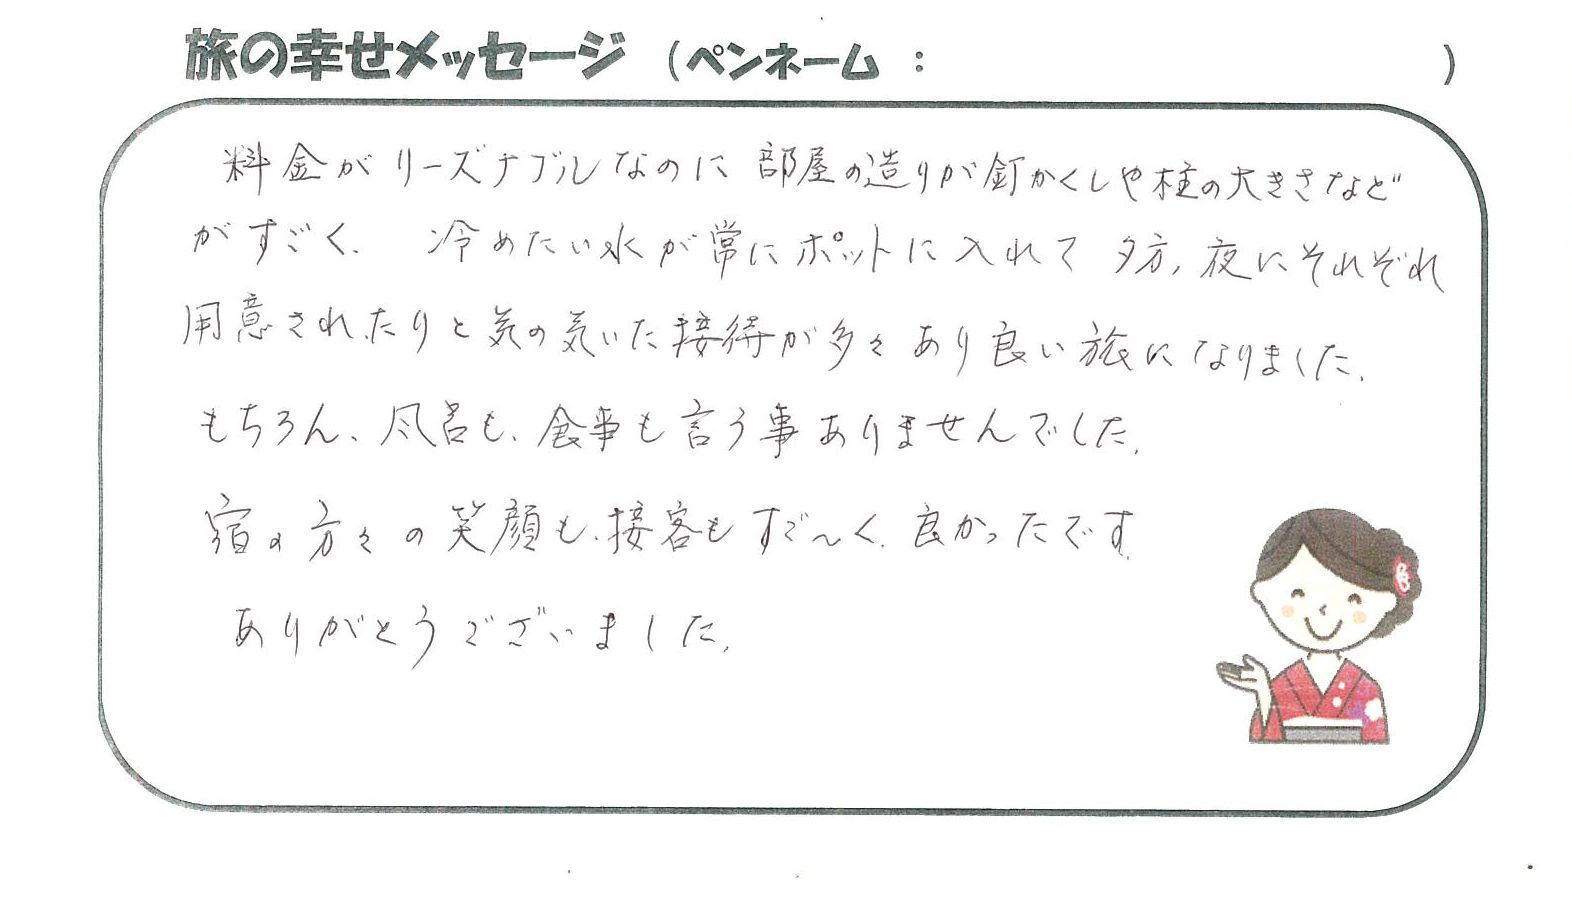 旅の幸せメッセージ (ペンネーム : )
料金がリーズナブルなのに 部屋の造りが釘かくしや柱の大きさなど
がすごく、 冷めたい水が常にポットに入れて 夕方、夜にそれぞれ
用意されたりと気の気いた接待が多々あり良い旅になりました。
もちろん、風呂も、食事も言う事ありませんでした。
宿の方々の笑顔も、接客もすご〜く、良かったです。
ありがとうございました。